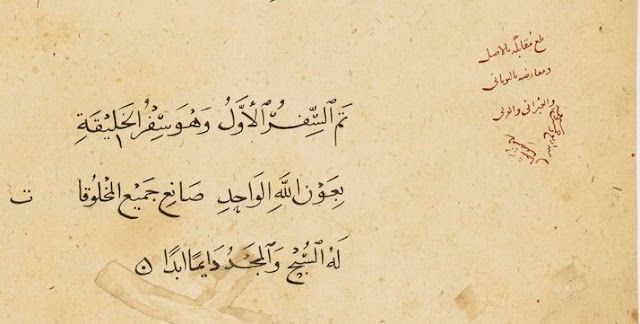 تم السِّفرُ الأوَّلُ وَهُوَ سِفْرُ الخَلِيقَةِ
بِعَوْنِ اللَّهِ الوَاحِدِ صَانِعِ جَمِيعِ المَخْلُوقَا ت
لَهُ السُّبْحُ وَالمَجْدُ دَايمًا ابدًا
بلغ مقابلة بالاصل
ومعارضه باليونانى
والعبرانى